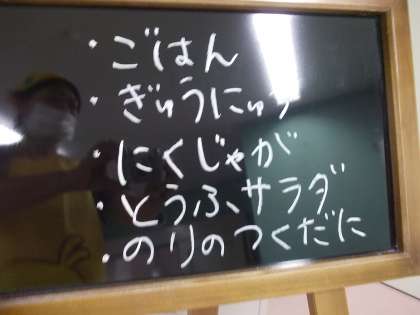 ・ごはん
・ぎゅうにゅう
・にくじゃが
・とうふサラダ
・のりのつくだに